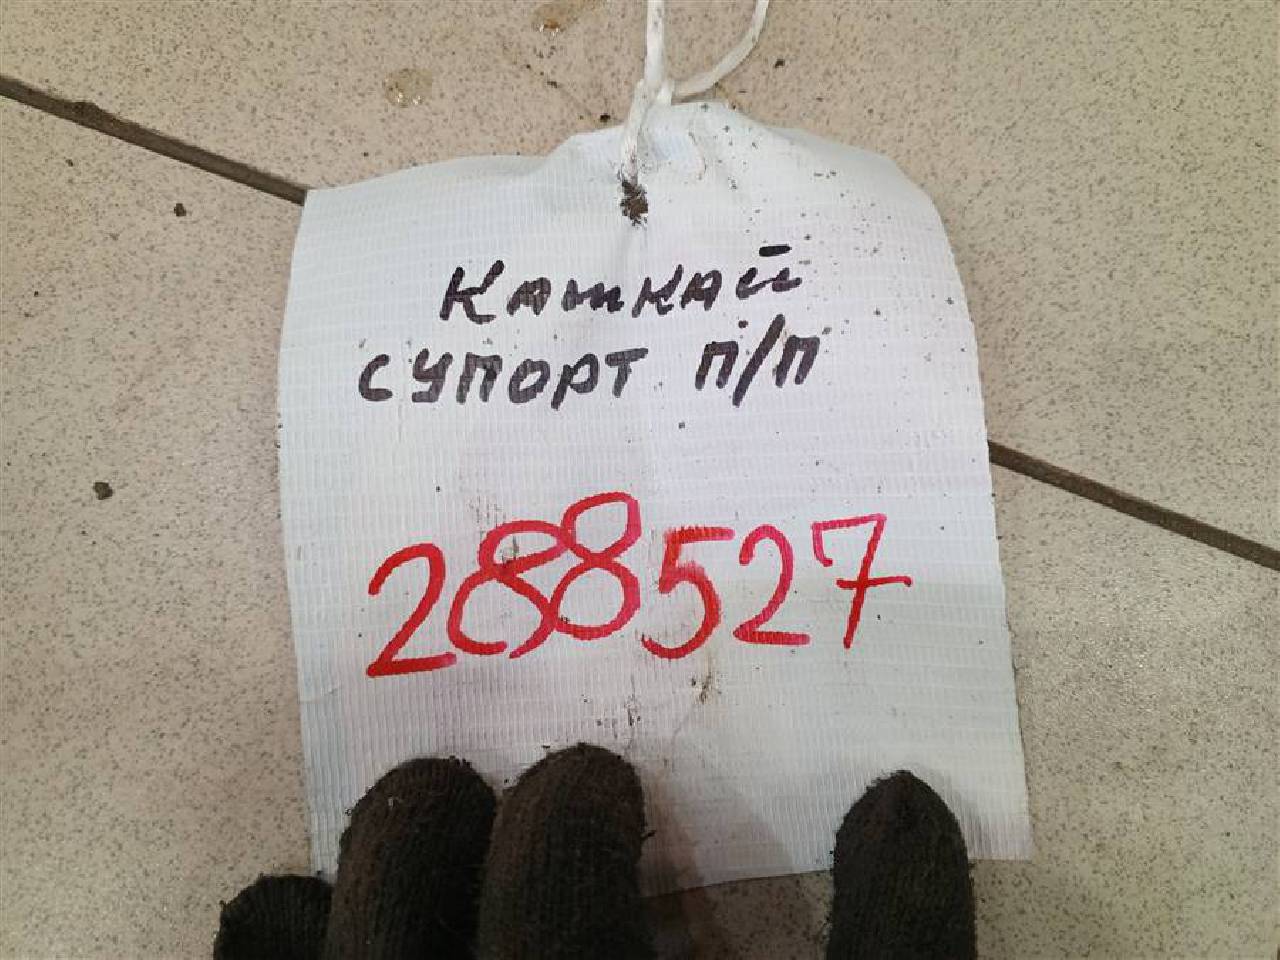 Кашкай
супорт п/п
288527